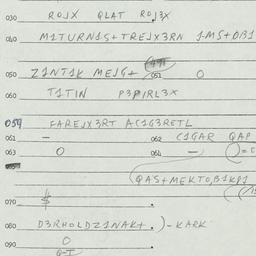 030 ROJX QLAT ROJ3X
040 M1TURN1S+TREJX3RN 1-MS+OB1
050 Z1NT1K MEJG+ 051 O
060 T1TIN P3P1RL3X
059 FAREJX3RT AC1G3RETL
061 – 062 C1GAR QAP
063 O 064 –
QAS+MEKTO,B1KP1
070 $
080 D3RHOLDZ1NAK+.)-KARK
090 O
Q-T